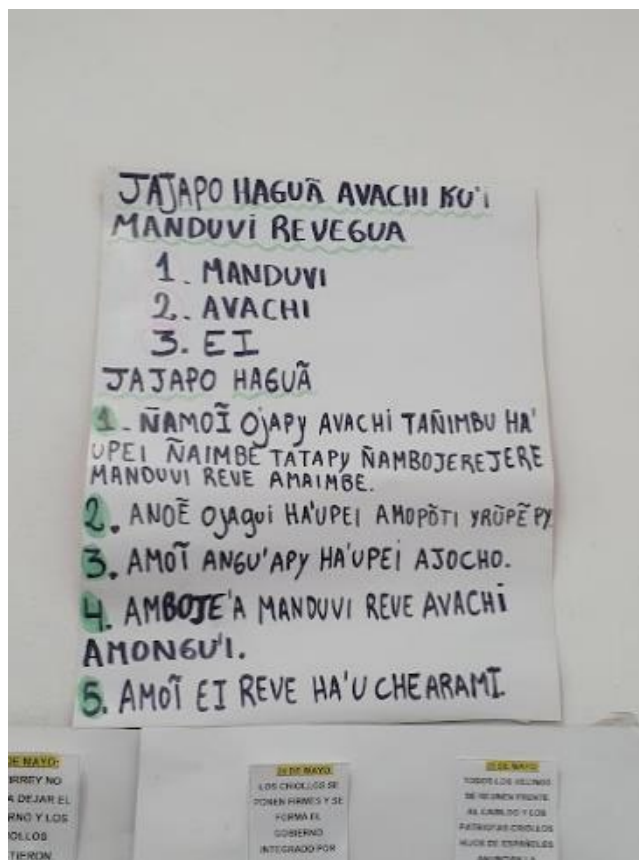 JAJAPO HAGUÃ AVACHI KU'I
MANDUVI REVEGUA
1. MANDUVI
2. AVACHI
3. EI
JAJAPO HAGUÃ
1. ÑAMOĨ OJAPY AVACHI TAÑIMBU HA'
UPEI ÑAIMBE TATAPY ÑAMBOJEREJERE
MANDUVI REVE AMAIMBE.
2. ANOẼ OJAGUI HA'UPEI AMOPÕTI YRŨPẼ PY
3. AMOĨ ANGU'APY HA'UPEI AJOCHO.
4. AMBOJE'A MANDUVI REVE AVACHI
AMONGU'I.
5. AMOĨ EI REVE HA'U CHEARAMI.
DE MAYO:
IRREY NO
A DEJAR EL
RNO Y LOS
OLLOS
TIERON
DE MAYO:
LOS CRIOLLOS SE
PONEN FIRMES Y SE
FORMA EL
GOBIERNO
INTEGRADO POR
DE MAYO:
TODOS LOS VECINOS
SE REUNEN FRENTE
AL CABILDO Y LOS
PATRIOTAS CRIOLLOS
HIJOS DE ESPAÑOLES